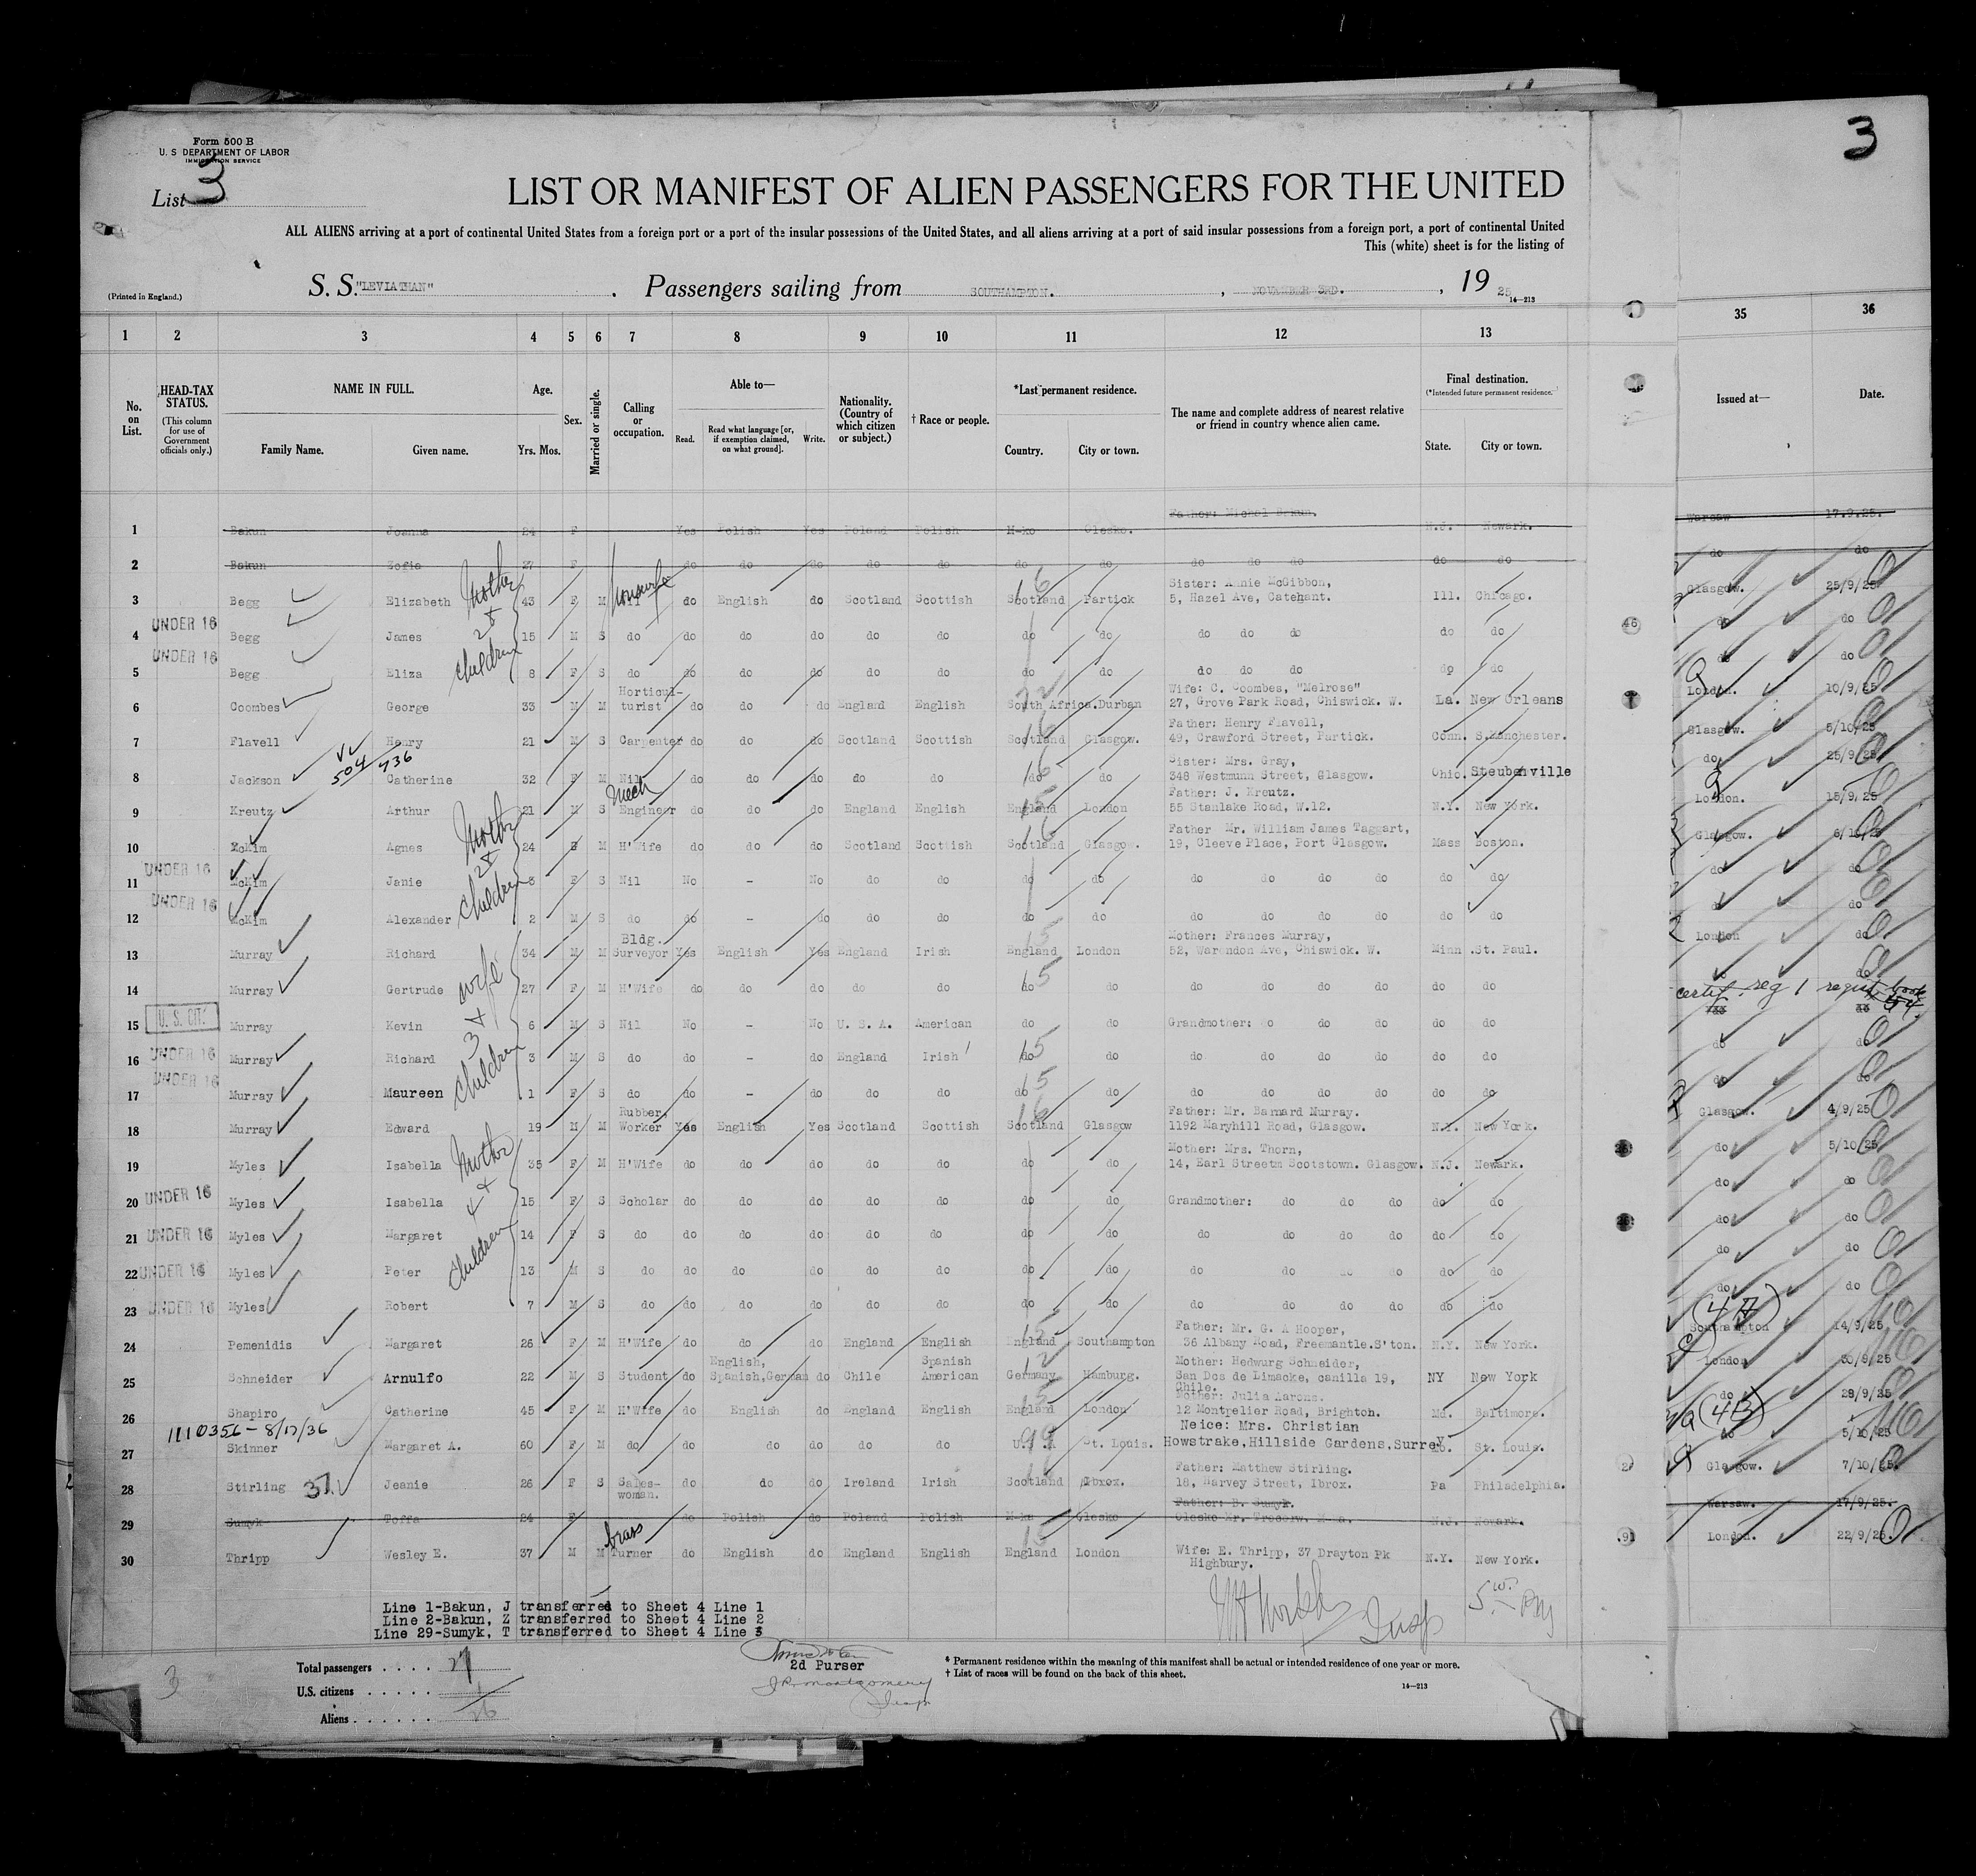 Form 500 B
U. S DEPARTMENT OF LABOR
IMMIGRATION SERVICE
List 3
3
LIST OR MANIFEST OF ALIEN PASSENGERS FOR THE UNITED
ALL ALIENS arriving at a port of continental United States from a foreign port or a port of the insular possessions of the United States, and all aliens arriving at a port of said insular possessions from a foreign port, a port of continental United
This (white) sheet is for the listing of
(Printed in England.) S. S. "LEVIATHAN" . Passengers sailing from SOUTHAMPTON. , NOVEMBER 3RD. , 19 25
14—213
1 2 3 4 5 6 7 8 9 10 11 12 13 35 36
No. on List. HEAD-TAX STATUS. (This column for use of Government officials only.) NAME IN FULL. Family Name. Given name. Age. Yrs. Mos. Sex. Married or single. Calling or occupation. Able to— Read. Read what language [or, if exemption claimed, on what ground]. Write. Nationality. (Country of which citizen or subject.) † Race or people. *Last permanent residence. Country. City or town. The name and complete address of nearest relative or friend in country whence alien came. Final destination. (*Intended future permanent residence.) State. City or town. Issued at— Date.
Father: Michel Bakun.
1 Bakun Joanna 24 F Yes Polish Yes Poland Polish M-ko Olesko. N.J. Newark. Warsaw 17.9.25.
2 Bakun Zofia 27 F do do do do do do do do do do do do do do
Mother 2 + children
housewife
Sister: Annie McGibbon,
3 Begg Elizabeth 43 F M Nil do English do Scotland Scottish Scotland Partick 5, Hazel Ave, Catehant. Ill. Chicago. Glasgow. 25/9/25
UNDER 16
4 Begg James 15 M S do do do do do do do do do do do do do do do
UNDER 16
5 Begg Eliza 8 F S do do do do do do do do do do do do do do do
Horticul- Wife: C. Coombes, "Melrose"
6 Coombes George 33 M M turist do do do England English South Africa. Durban 27, Grove Park Road, Chiswick. W. La. New Orleans London. 10/9/25
Father: Henry Flavell,
7 Flavell Henry 21 M S Carpenter do do do Scotland Scottish Scotland Glasgow. 49, Crawford Street, Partick. Conn. S.Manchester. Glasgow. 5/10/25
504 736
Sister: Mrs. Gray,
8 Jackson Catherine 32 F M Nil do do do do do do do 348 Westmunn Street, Glasgow. Ohio. Steubenville do 25/9/25
mech
Father: J. Kreutz.
9 Kreutz Arthur 21 M S Engineer do do do England English England London 55 Stanlake Road, W.12. N.Y. New York. London. 15/9/25
Mother 2 + children
Father Mr. William James Taggart,
10 McKim Agnes 24 M H'Wife do do do Scotland Scottish Scotland Glasgow. 19, Cleeve Place, Port Glasgow. Mass Boston. Glasgow.
UNDER 16
11 McKim Janie F S Nil No - No do do do do do do do do do do do do
UNDER 16
12 McKim Alexander 2 M S do do - do do do do do do do do do do do do do
Bldg. Mother: Frances Murray,
13 Murray Richard 34 M M Surveyor Yes English Yes England Irish England London 52, Warendon Ave, Chiswick. W. Minn .St. Paul. London do
wife 3 + children
14 Murray Gertrude 27 F M H'Wife do do do do do do do do do do do do do do do
U. S. CIT.
15 Murray Kevin 6 M S Nil No - No U. S. A. American do do Grandmother: do do do do do do
UNDER 16
16 Murray Richard 3 M S do do - do England Irish do do do do do do do do do do
UNDER 16
17 Murray Maureen 1 F S do do - do do do do do do do do do do do do do
Rubber, Father: Mr. Barnard Murray.
18 Murray Edward 19 M M Worker Yes English Yes Scotland Scottish Scotland Glasgow 1192 Maryhill Road, Glasgow. N.Y. New York. Glasgow. 4/9/25
Mother 4 + children
Mother: Mrs. Thorn,
19 Myles Isabella 35 F M H'Wife do do do do do do do 14, Earl Streetm Scotstown. Glasgow. N.J. Newark. do 5/10/25
20 UNDER 16 Myles Isabella 15 F S Scholar do do do do do do do Grandmother: do do do do do do do
21 UNDER 16 Myles Margaret 14 F S do do do do do do do do do do do do do do do do
22 UNDER 16 Myles Peter 13 M S do do do do do do do do do do do do do do do do
23 UNDER 16 Myles Robert 7 M S do do do do do do do do do do do do do do do do
Father: Mr. G. A Hooper,
24 Pemenidis Margaret 26 F M H'Wife do do do England English England Southampton 36 Albany Road, Freemantle.S'ton. N.Y. New York. Southampton 14/9/25
English, Spanish Mother: Hedwurg Schneider,
25 Schneider Arnulfo 22 M S Student do Spanish,German do Chile American Germany Hamburg. San Dos de Limacke, canilla 19, NY New York London 30/9/25
Chile.
Mother: Julia Aarons.
26 Shapiro Catherine 45 F M H'Wife do English do England English England London 12 Montpelier Road, Brighton. Md. Baltimore. do 28/9/25
1110356 - 8/17/36
Neice: Mrs. Christian
27 Skinner Margaret A. 60 F M do do do do do do St. Louis. Howstrake,Hillside Gardens,Surrey St. Louis. do 5/10/25
Father: Matthew Stirling.
28 Stirling 37 Jeanie 26 F S Sales- do do do Ireland Irish Scotland Ibrox. 18, Harvey Street, Ibrox. Pa Philadelphia. Glasgow. 7/10/25.
woman.
Father: B. Sumyk.
29 Sumyk Toffa 24 F do Polish do Poland Polish M-ko Olesko N.J. Newark. Warsaw. 17/9/25.
brass
30 Thripp Wesley E. 37 M M Turner do English do England English England London Wife: E. Thripp, 37 Drayton Pk N.Y. New York. London. 22/9/25.
Highbury.
Line 1-Bakun, J transferred to Sheet 4 Line 1
Line 2-Bakun, Z transferred to Sheet 4 Line 2
Line 29-Sumyk, T transferred to Sheet 4 Line 3
Insp
Total passengers . . . . 27
U.S. citizens . . . . . 1
Aliens . . . . . . 26
3
2d Purser
J R Montgomery
Insp
* Permanent residence within the meaning of this manifest shall be actual or intended residence of one year or more.
† List of races will be found on the back of this sheet.
14—213